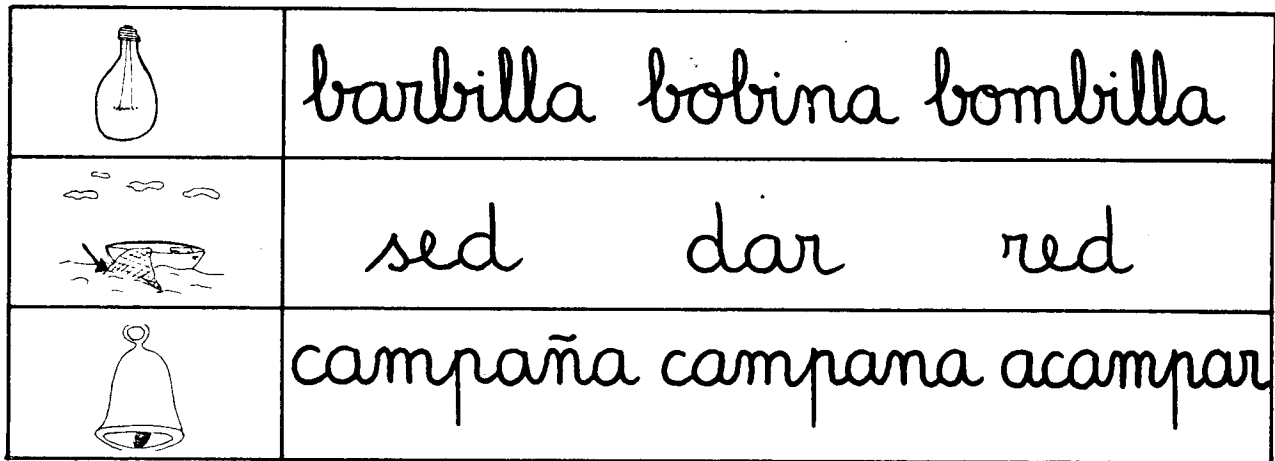 barbilla bobina bombilla
sed dar red
campaña campana acampar